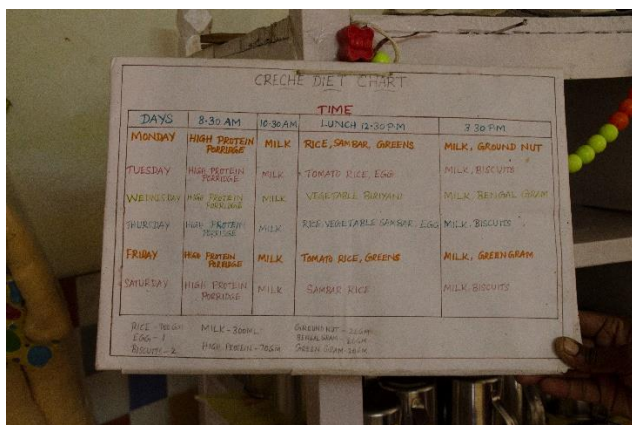 CRECHE DIET CHART
TIME
DAYS 8-30 AM 10-30AM LUNCH 12-30P.M 3 30 P.M
MONDAY HIGH PROTEIN PORRIDGE MILK RICE, SAMBAR, GREENS MILK, GROUND NUT
TUESDAY HIGH PROTEIN PORRIDGE MILK TOMATO RICE, EGG MILK, BISCUITS
WEDNESDAY HIGH PROTEIN PORRIDGE MILK VEGETABLE BIRIYANI MILK, BENGAL GRAM
THURSDAY HIGH PROTEIN PORRIDGE MILK RICE VEGETABLE SAMBAR, EGG MILK, BISCUITS
FRIDAY HIGH PROTEIN PORRIDGE MILK TOMATO RICE, GREENS MILK, GREENGRAM
SATURDAY HIGH PROTEIN PORRIDGE MILK SAMBAR RICE MILK, BISCUITS
RICE - MILK - 300ML GROUND NUT -
EGG - 1 BENGAL GRAM -
BISCUITS - 2 HIGH PROTEIN - GREEN GRAM -